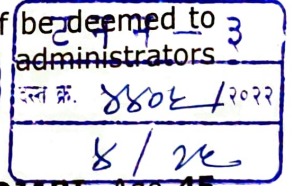 f be deemed to
ट न न - ३
administrators
दस्त क्र. ४४०६/२०२२
४ / २८
45